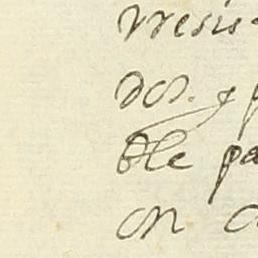 vresis
dor. y p
ble pa
on a